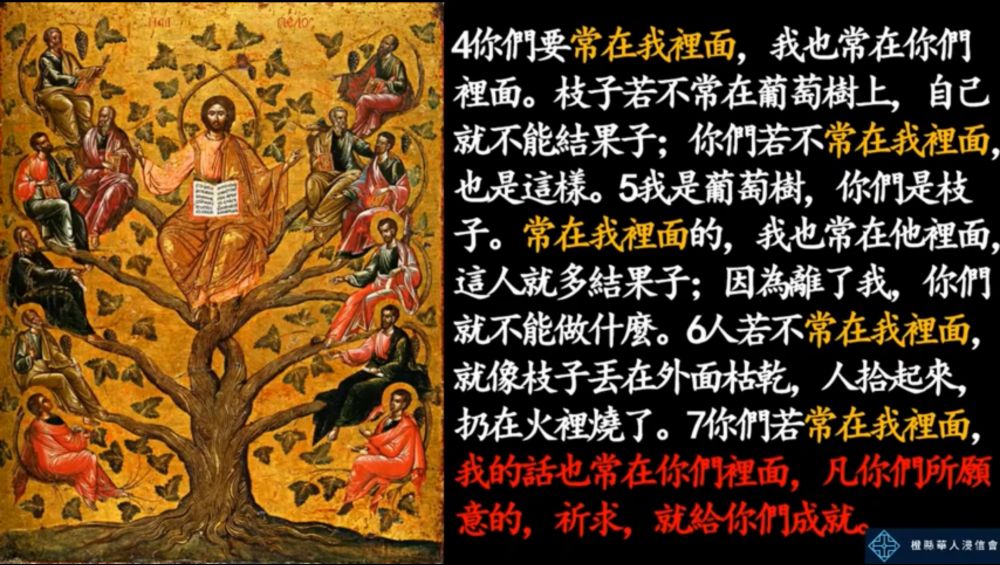 4你們要常在我裡面，我也常在你們
裡面。枝子若不常在葡萄樹上，自己
就不能結果子；你們若不常在我裡面，
也是這樣。5我是葡萄樹，你們是枝
子。常在我裡面的，我也常在他裡面，
這人就多結果子；因為離了我，你們
就不能做什麼。6人若不常在我裡面，
就像枝子丟在外面枯乾，人拾起來，
扔在火裡燒了。7你們若常在我裡面，
我的話也常在你們裡面，凡你們所願
意的，祈求，就給你們成就。
橙縣華人浸信會